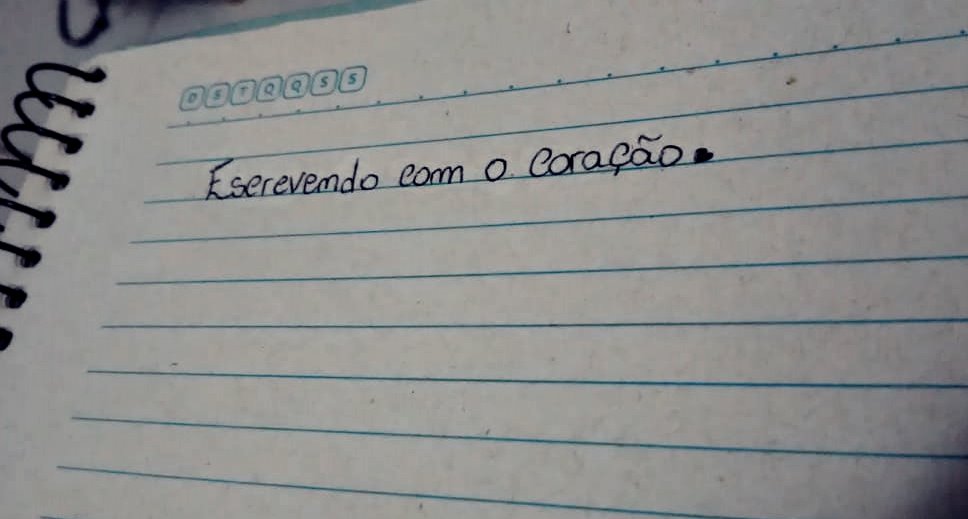 D S T Q Q S S
Escrevendo com o coração.